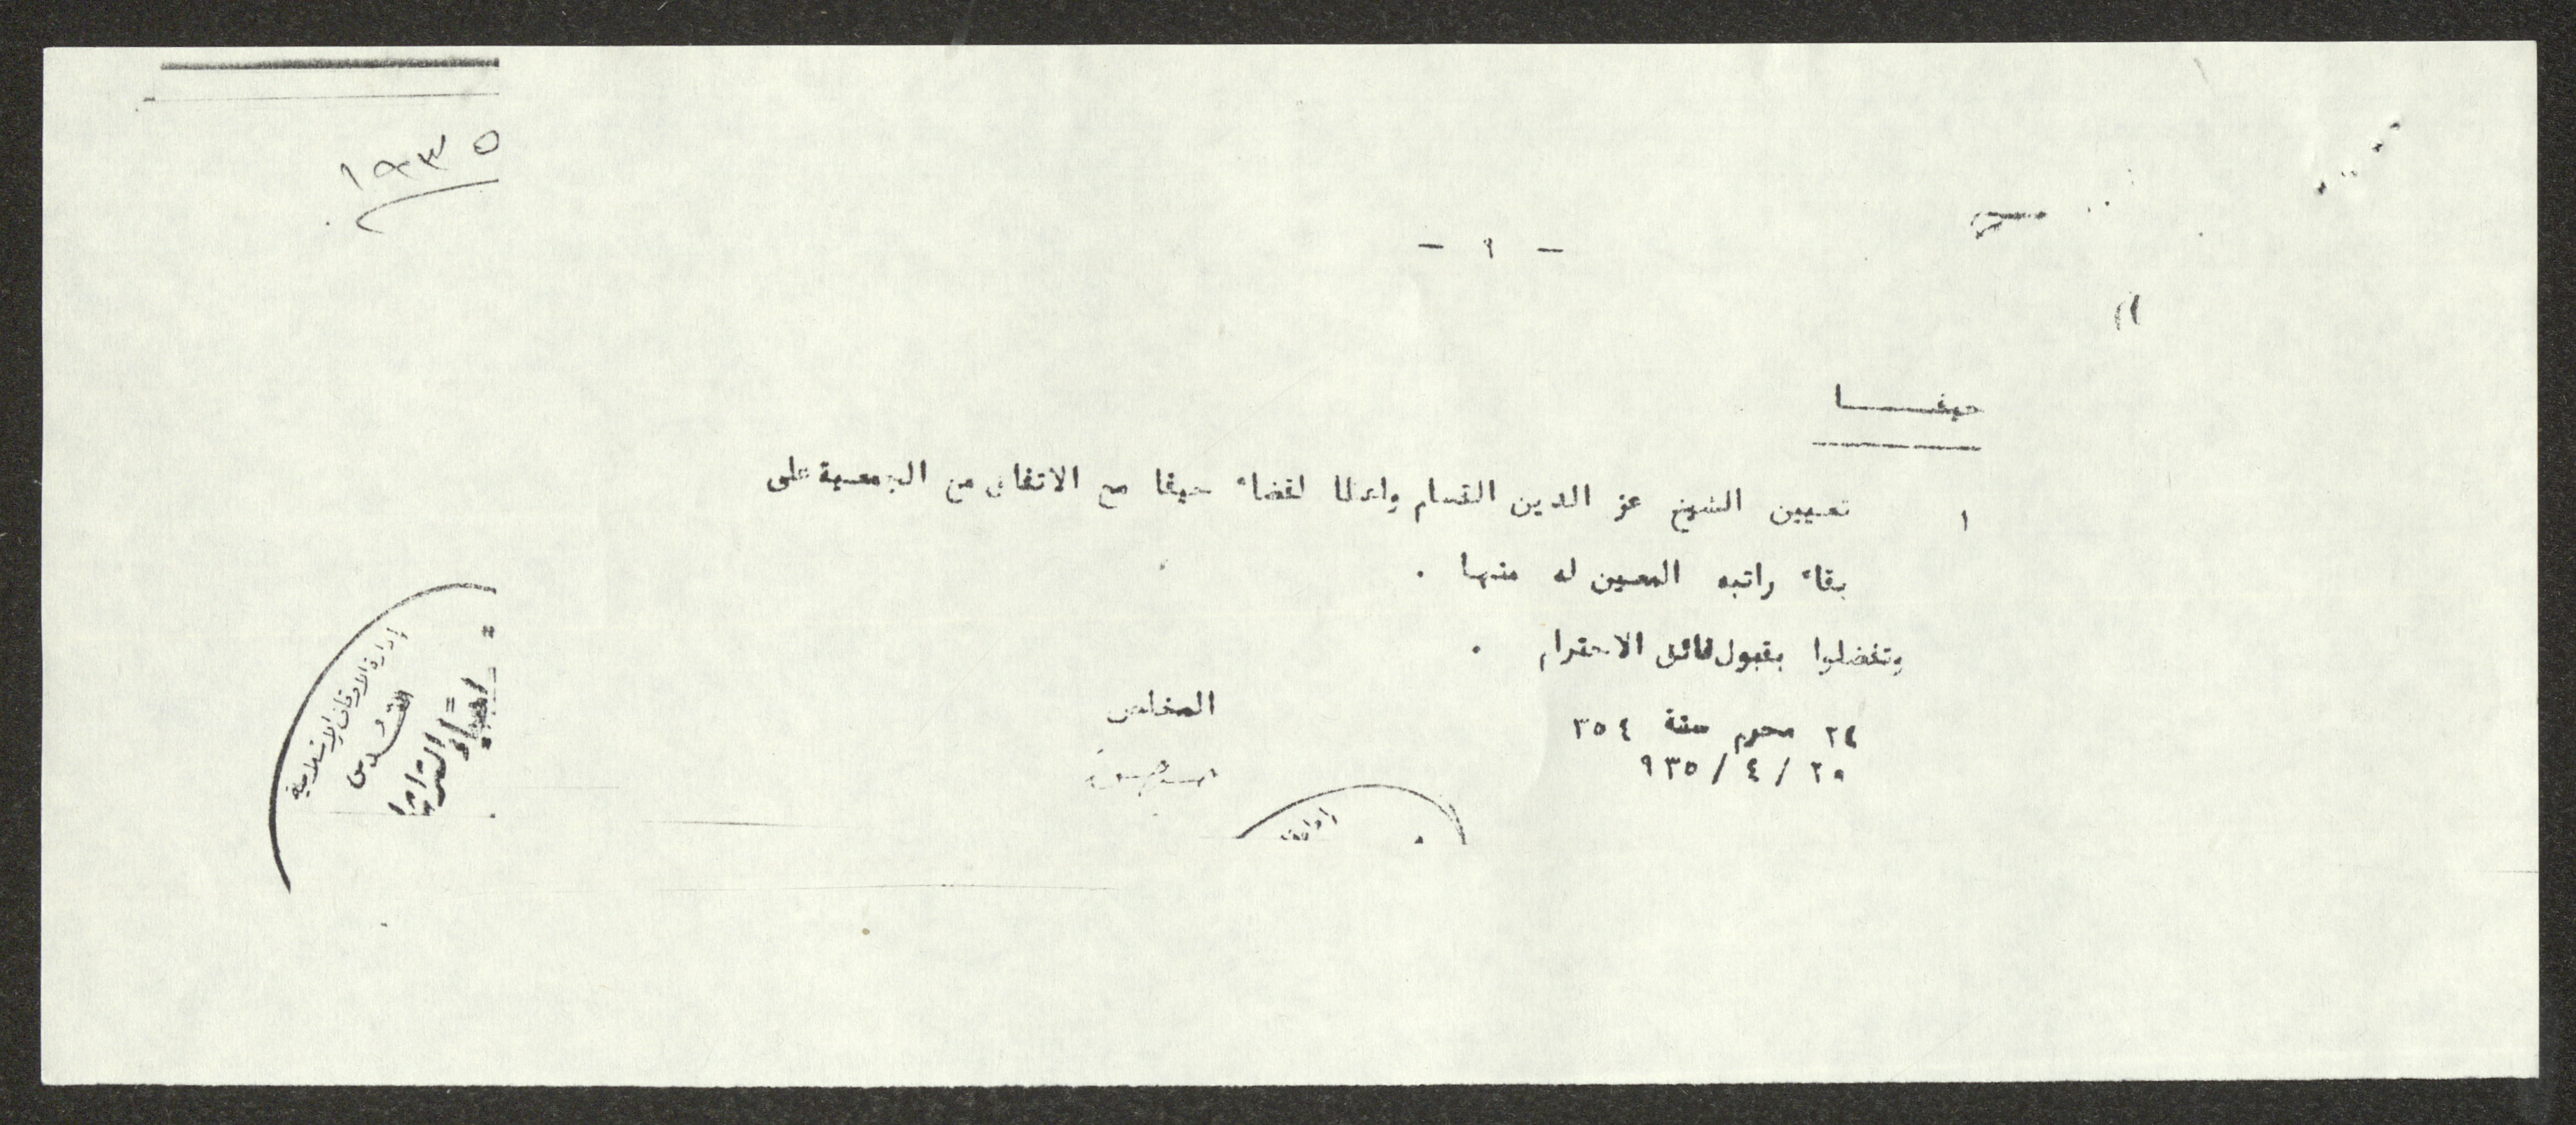 ١٩٣٥
- ٩ -
حيفـــــا
١ تعيين الشيخ عز الدين القسام واعظا لقضاء حيفا مع الاتفاق مع الجمعية على
بقاء راتبه المعين له منها .
وتفضلوا بقبول فائق الاحترام .
المخلص
٢٤ محرم سنة ٣٥٤
٩٣٥/ ٤ / ٢٩
إدارة الاوقاف الاسلامية
القدس
إحياء التراث